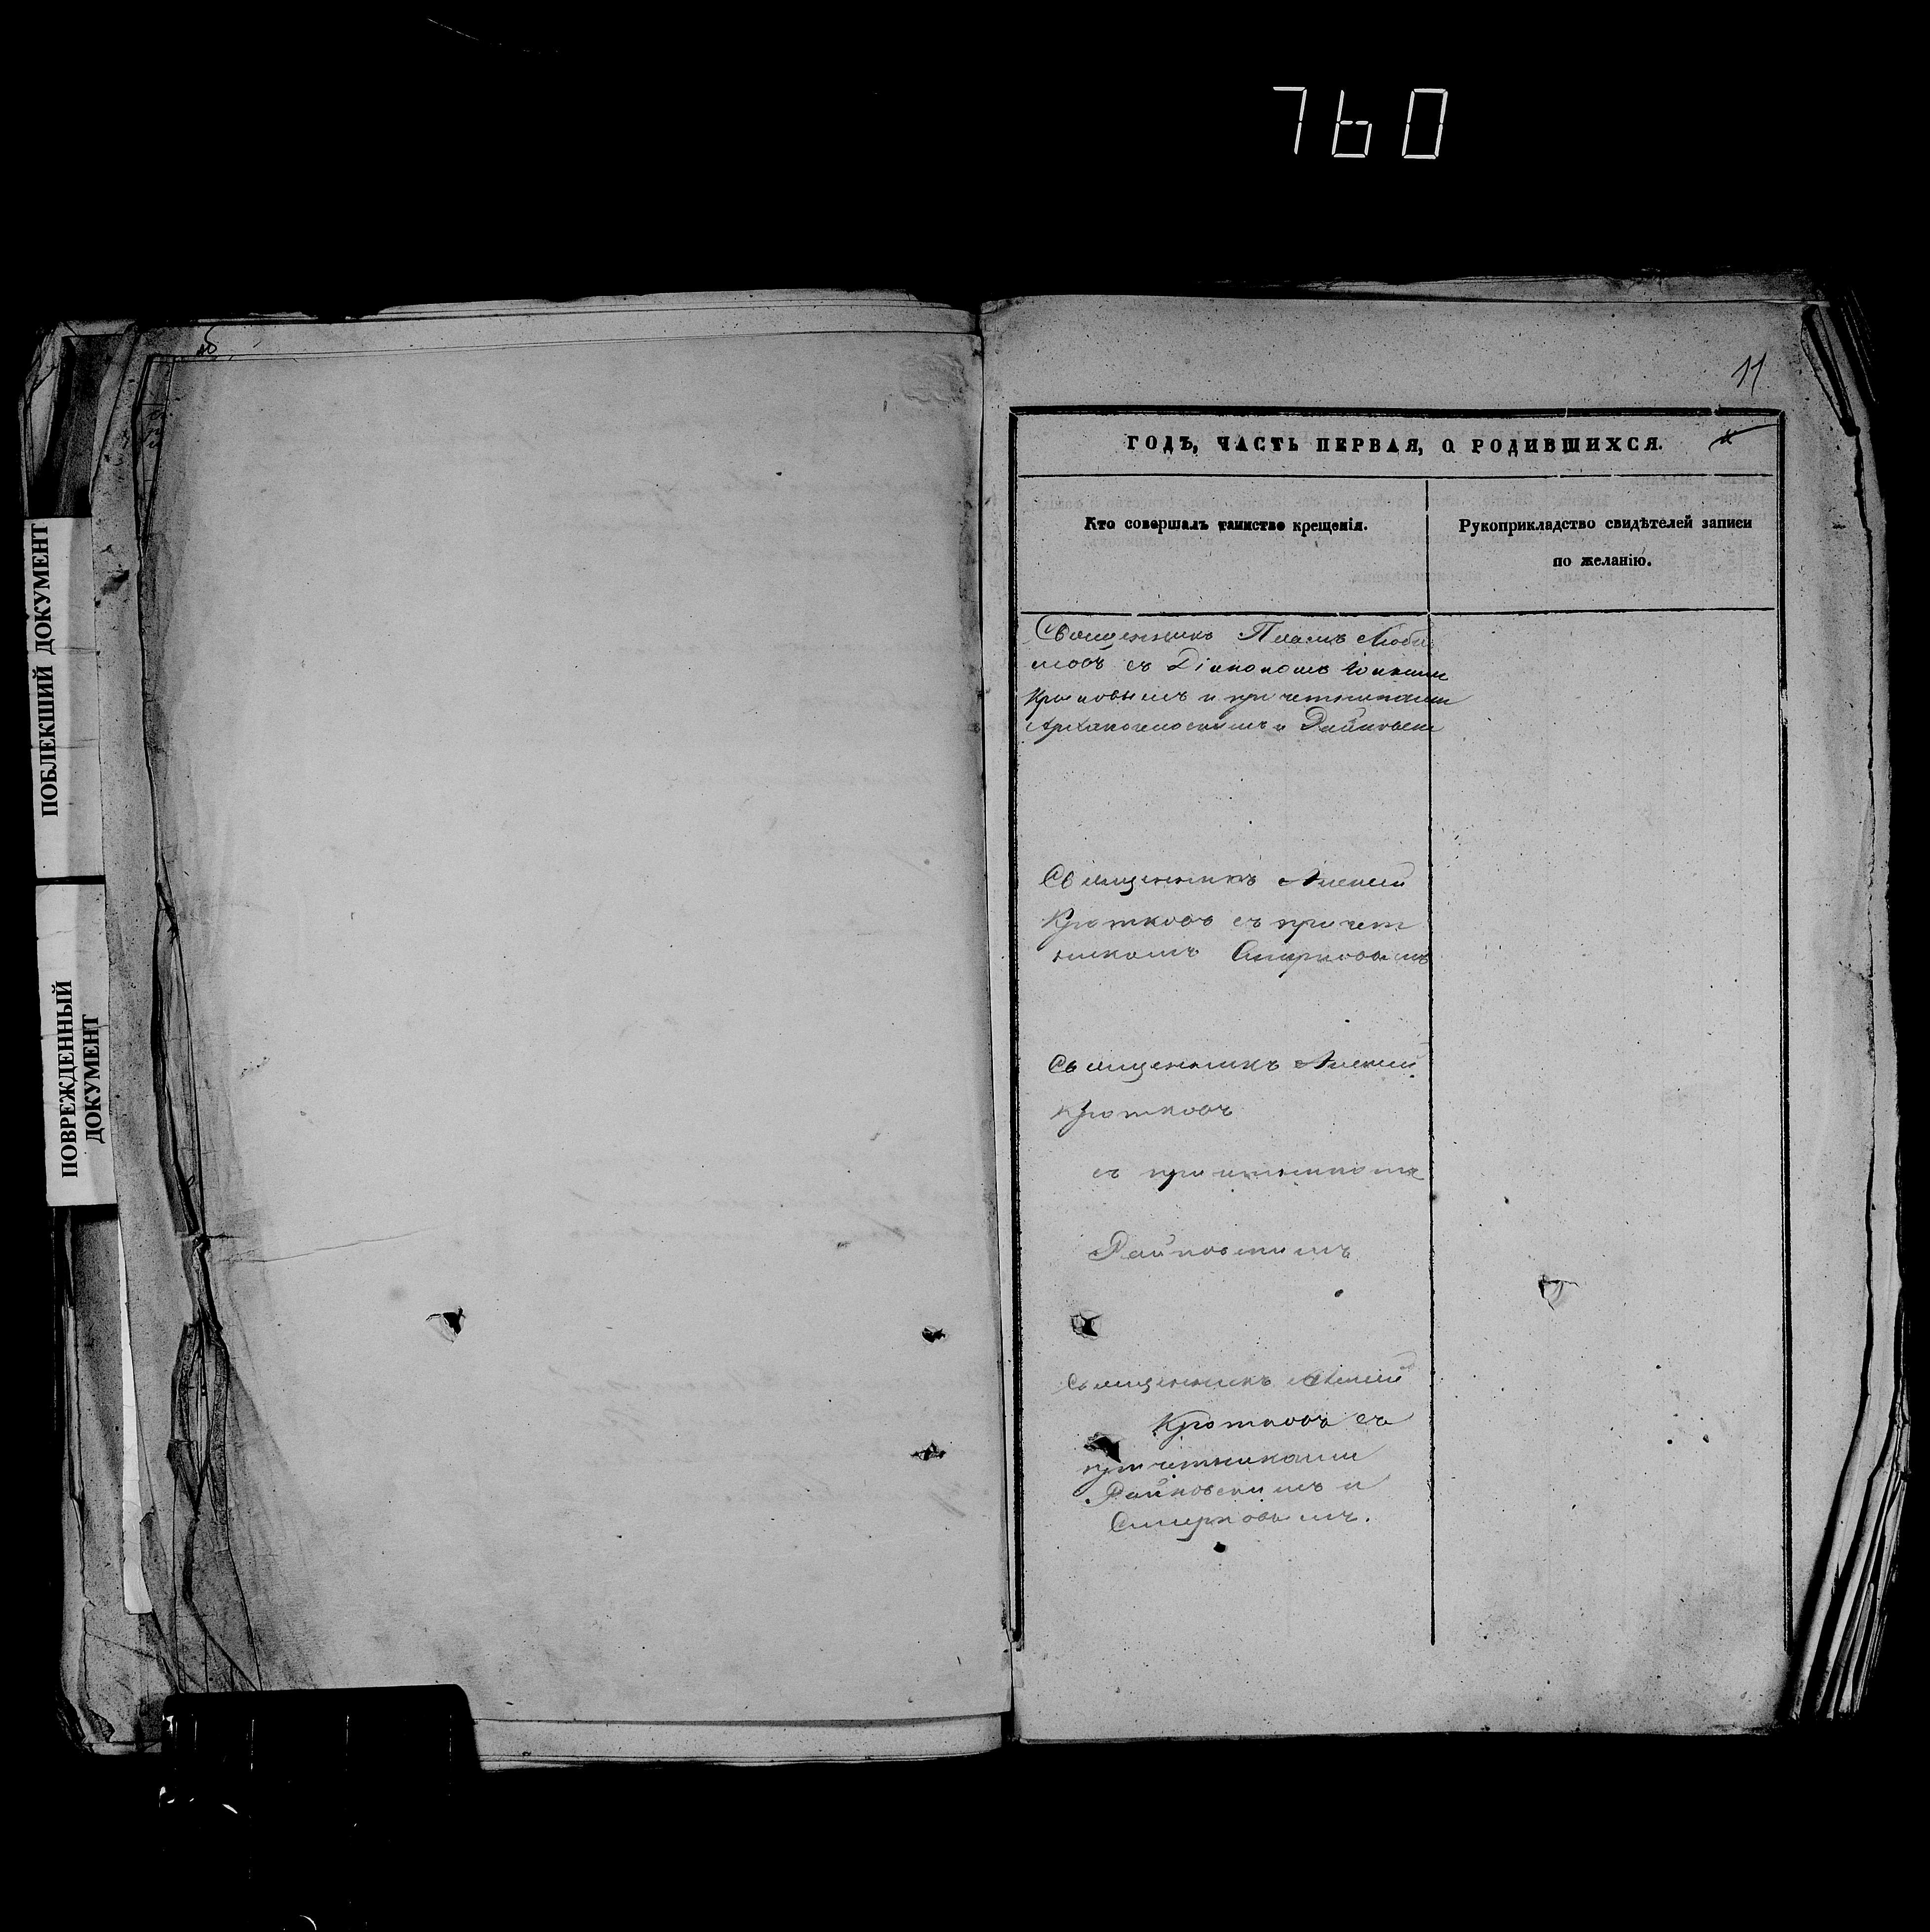 760
ПОБЛЕКШИЙ ДОКУМЕНТ
ПОВРЕЖДЕННЫЙ
ДОКУМЕНТ
11
ГОДЪ, ЧАСТЬ ПЕРВАЯ, О РОДИВШИХСЯ.
Кто совершалъ таинство крещенія.
Рукоприкладство свидѣтелей записи
по желанію.
Священникъ Павелъ Люби
мовъ съ Діакономъ
и причетниками
Архангельскимъ и
Священникъ Алексій
Кротковъ съ причет
никомъ Смирновымъ
Священникъ Алексій
Кротковъ
съ причетникомъ
Райковскимъ
Священникъ Алексій
Кротковъ съ
причетниками
Райковскимъ и
Смирновымъ.